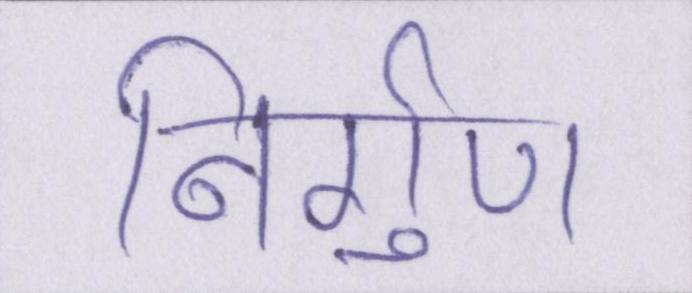 निर्गुण